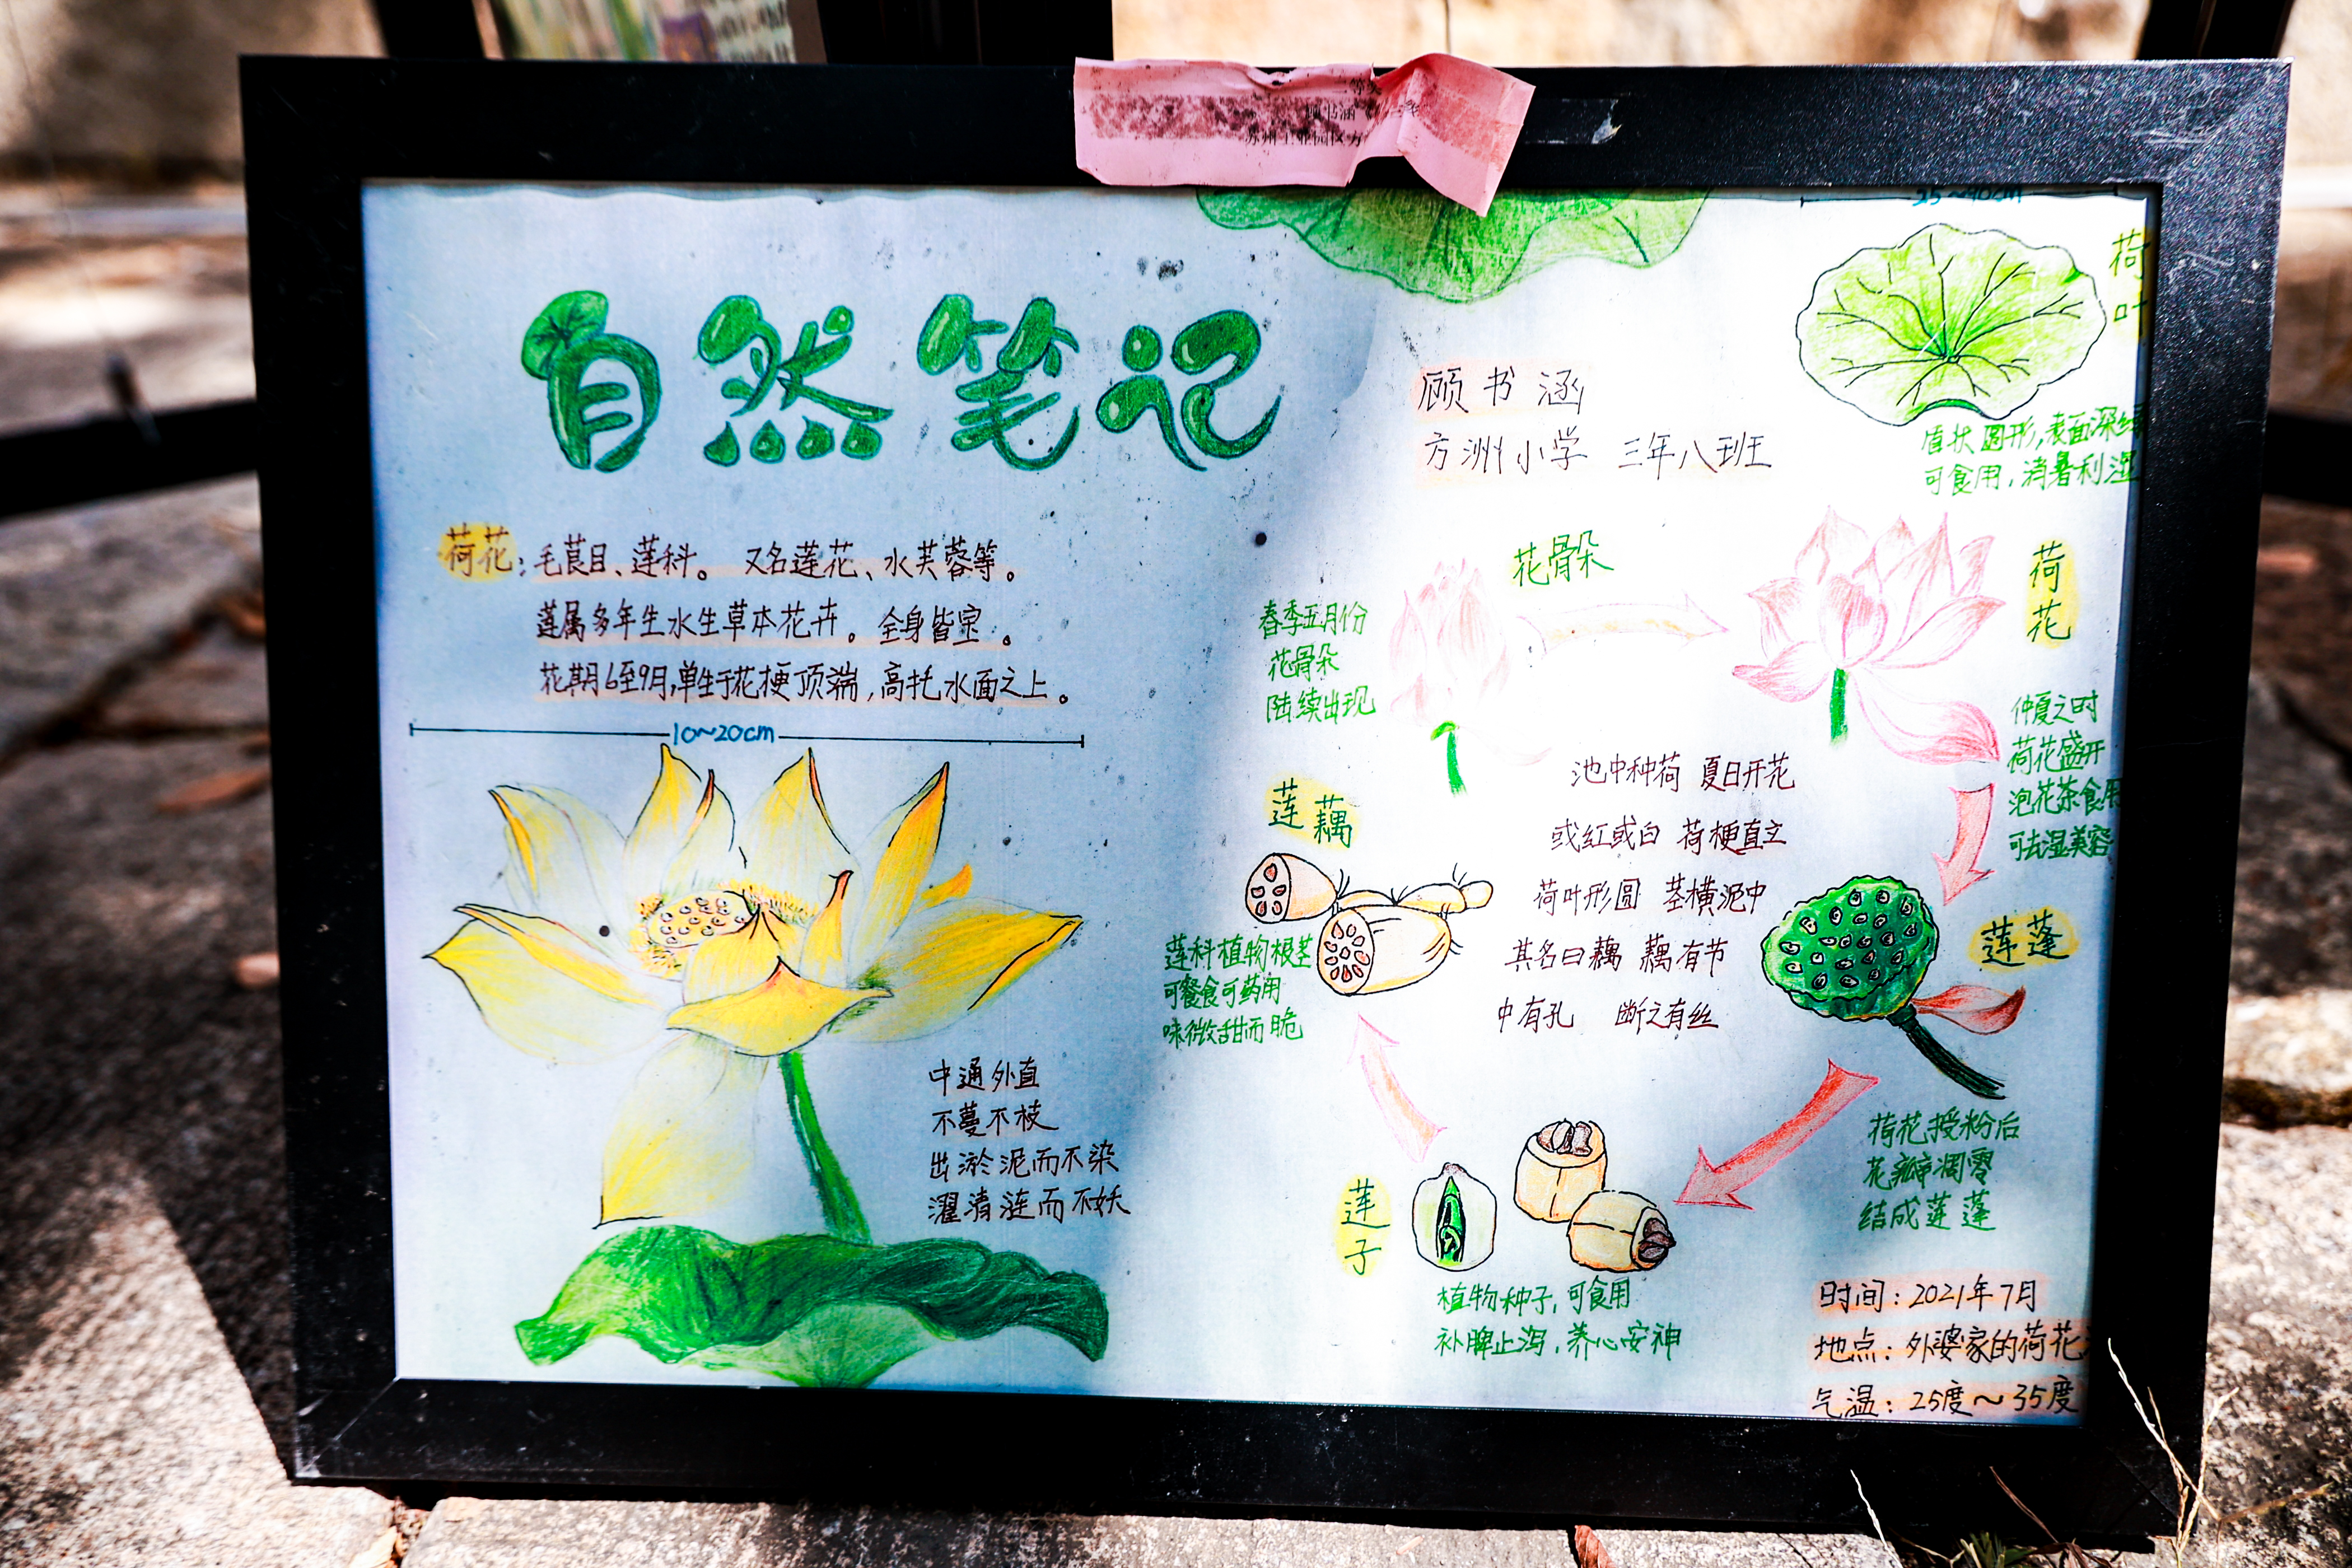 二等奖
顾书涵
苏州工业园区方
自然笔记
荷花：毛茛目、莲科。 又名莲花、水芙蓉等。
莲属多年生水生草本花卉。全身皆宝。
花期6至9月,单生于花梗顶端,高托水面之上。
10~20cm
中通外直
不蔓不枝
出淤泥而不染
濯清涟而不妖
25~40cm
荷叶
盾状圆形,表面深绿
可食用,消暑利湿
顾书涵
方洲小学 三年八班
花骨朵
春季五月份
花骨朵
陆续出现
荷花
仲夏之时
荷花盛开
泡花茶食用
可去湿美容
池中种荷 夏日开花
或红或白 荷梗直立
荷叶形圆 茎横泥中
其名曰藕 藕有节
中有孔 断之有丝
莲藕
莲科植物根茎
可餐食可药用
味微甜而脆
莲蓬
荷花授粉后
花瓣凋零
结成莲蓬
莲子
植物种子,可食用
补脾止泻,养心安神
时间：2021年7月
地点：外婆家的荷花
气温：25度~35度